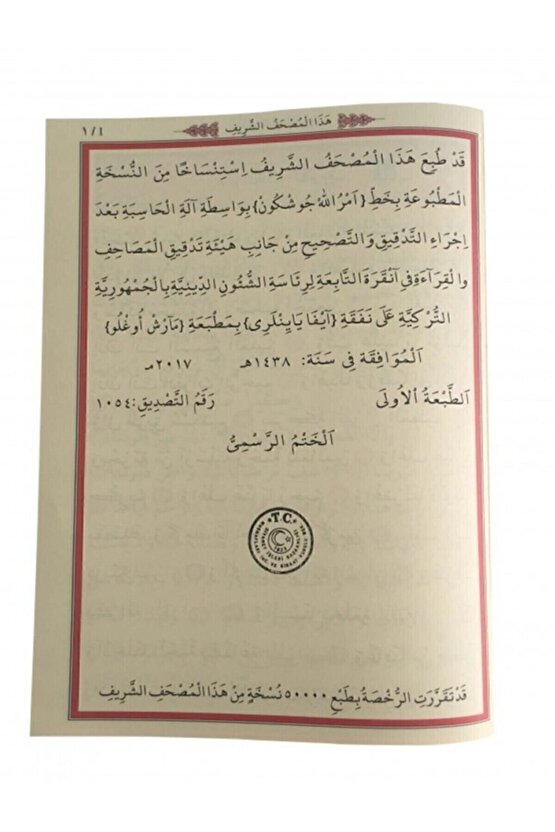 هَذَا الْمُصْحَفُ الشَّرِيفِ
١/٤
قَدْ طُبِعَ هَذَا الْمُصْحَفُ الشَّرِيفُ اِسْتِنْسَاخًا مِنَ النُّسْخَةِ
الْمَطْبُوعَةِ بِخَطِّ {اَمْرُاللهْ جُوشْكُونْ} بِوَاسِطَةِ آلَةِ الْحَاسِبَةِ بَعْدَ
اِجْرَاءِ التَّدْقِيقِ وَالتَّصْحِيحِ مِنْ جَانِبِ هَيْئَةِ تَدْقِيقِ الْمَصَاحِفِ
وَالْقِرَآءَةِ فِى آنْقَرَةَ التَّابِعَةِ لِرِئَاسَةِ الشُّئُونِ الدِّينِيَّةِ بِالْجُمْهُورِيَّةِ
التُّرْكِيَّةِ عَلَى نَفَقَةِ {آيْفَا يَايِنْلَرِى} بِمَطْبَعَةِ {مَآرْشْ أُوغْلُو}
اَلْمُوَافِقَةِ فِى سَنَةِ: ١٤٣٨هـ ٢٠١٧مـ
اَلطَّبْعَةُ الْاُولَى رَقَمُ التَّصْدِيقِ: ١٠٥٤
اَلْخَتْمُ الرَّسْمِىُّ
T.C.
قَدْ تَقَرَّرَتِ الرُّخْصَةُ بِطَبْعِ ٥٠٠٠٠ نُسْخَةٍ مِنْ هَذَا الْمُصْحَفِ الشَّرِيفِ